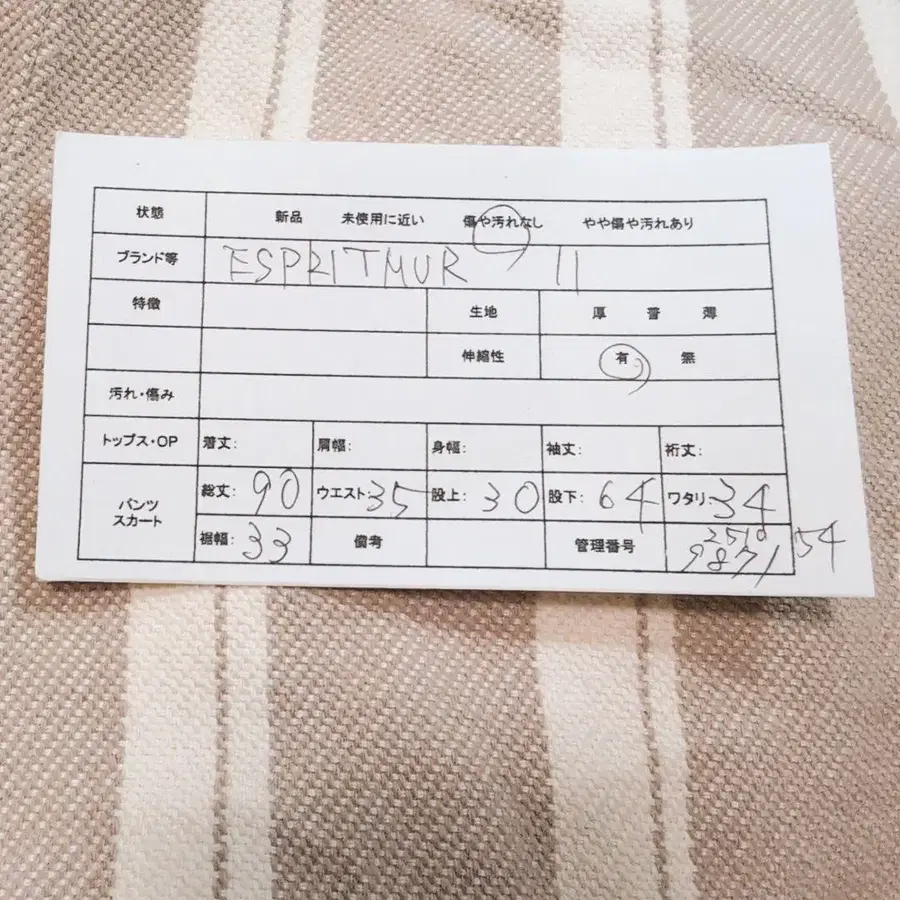 状態 新品 未使用に近い 傷や汚れなし やや傷や汚れあり
ブランド等 ESPRITMUR 11
特徴 生地 厚 普 薄
伸縮性 有 無
汚れ・傷み
トップス・OP 着丈: 肩幅: 身幅: 袖丈: 裄丈:
パンツ スカート 総丈: 90 ウエスト 35 股上: 30 股下: 64 ワタリ: 34
裾幅: 33 備考 管理番号 2510
9871 54